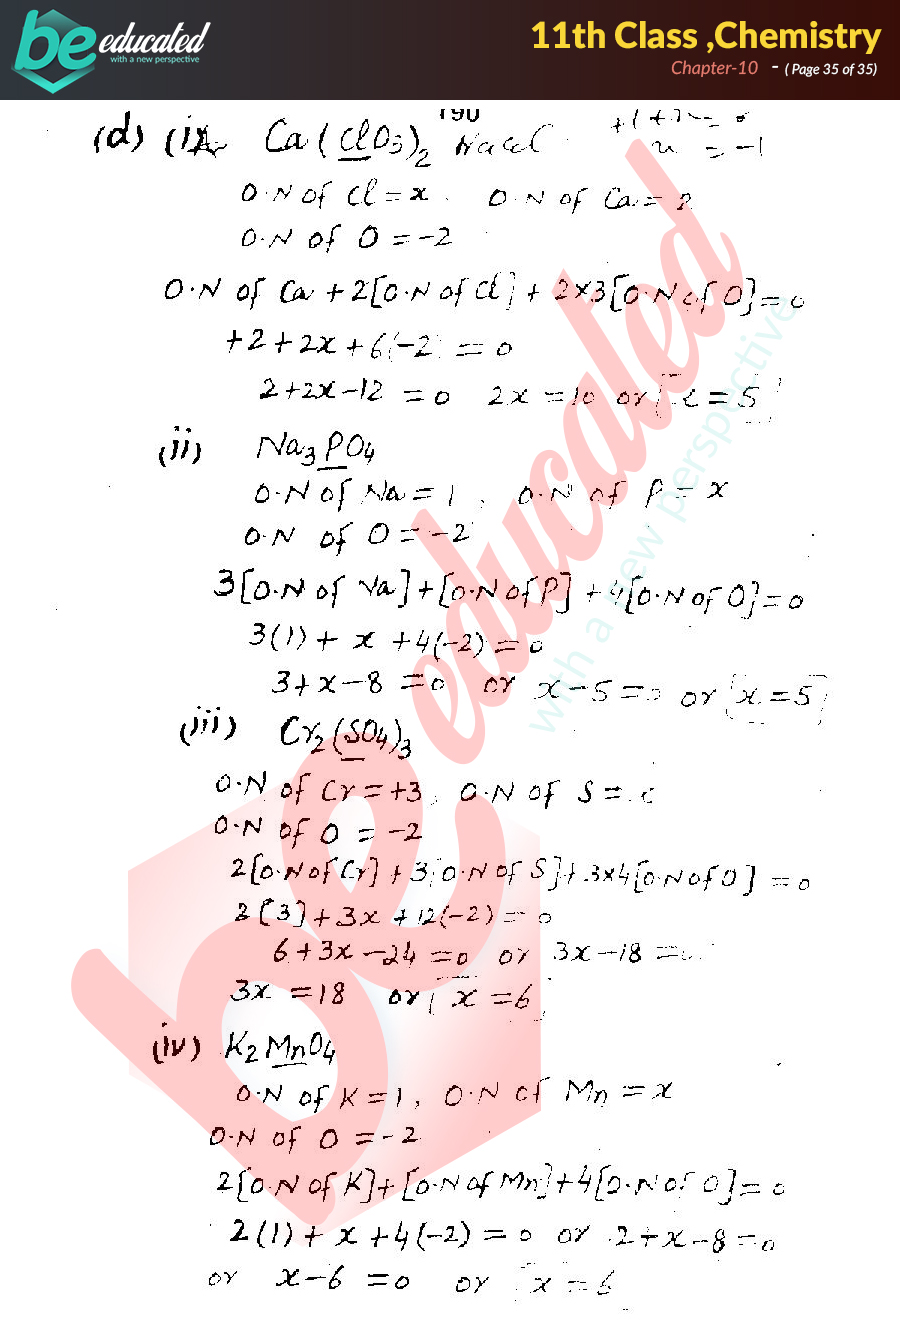 be educated
with a new perspective
11th Class ,Chemistry
Chapter-10 - ( Page 35 of 35)
190
(d) (i) Ca(ClO3)2 NaCl
= -1
O.N of Cl = x . O.N of Ca = 2
O.N of O = -2
O.N of Ca + 2[O.N of Cl] + 2x3[O.N of O] = 0
+2 + 2x + 6(-2) = 0
2+2x-12 = 0 2x = 10 or x = 5
(ii) Na3PO4
O.N of Na = 1 , O.N of P = x
O.N of O = -2
3[O.N of Na] + [O.N of P] + 4[O.N of O] = 0
3(1) + x + 4(-2) = 0
3+x-8 = 0 or x-5 = 0 or x = 5
(iii) Cr2(SO4)3
O.N of Cr = +3, O.N of S = x
O.N of O = -2
2[O.N of Cr] + 3[O.N of S] + 3x4[O.N of O] = 0
2[3] + 3x + 12(-2) = 0
6+3x-24 = 0 or 3x-18 = 0
3x = 18 or x = 6
(iv) K2MnO4
O.N of K = 1, O.N of Mn = x
O.N of O = -2
2[O.N of K] + [O.N of Mn] + 4[O.N of O] = 0
2(1) + x + 4(-2) = 0 or 2+x-8 = 0
or x-6 = 0 or x = 6
be educated
with a new perspective